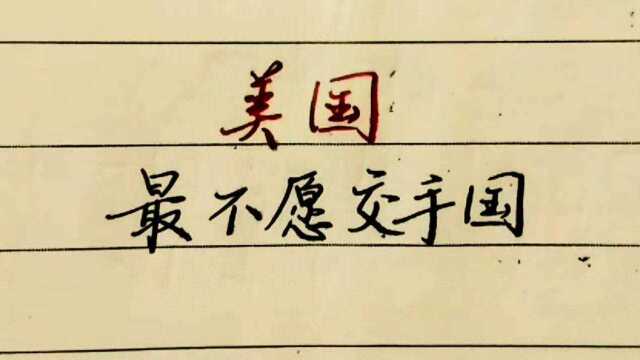 美国
最不愿交手国